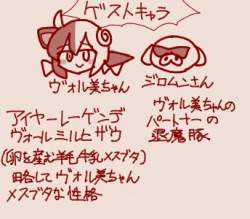 ゲストキャラ
ヴォル美ちゃん
ジロムンさん
アイヤーレーゲンデ
ヴォールミルヒザウ
(卵を産む羊毛牛乳メスブタ)
略してヴォル美ちゃん
メスブタな性格
ヴォル美ちゃんの
パートナーの
退魔豚